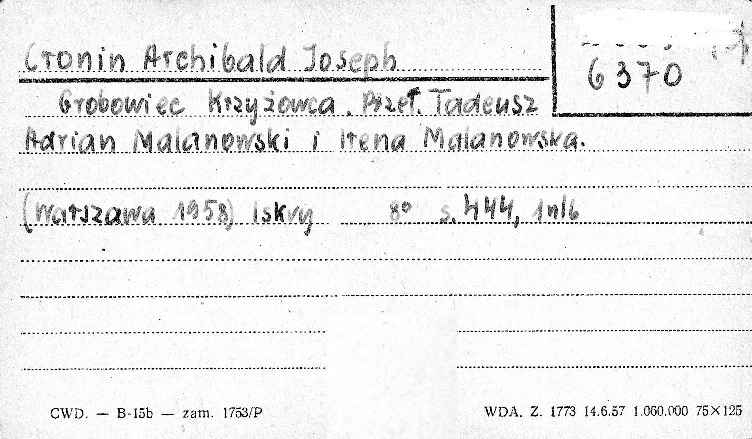 Cronin Archibald Joseph
6370
Grobowiec Krzyżowca. Przeł. Tadeusz
Adrian Malanowski i Irena Malanowska.
(Warszawa 1958) Iskry 8° s. 444, 1nlb
CWD. — B-15b — zam. 1753/P
WDA. Z. 1773 14.6.57 1.060.000 75×125